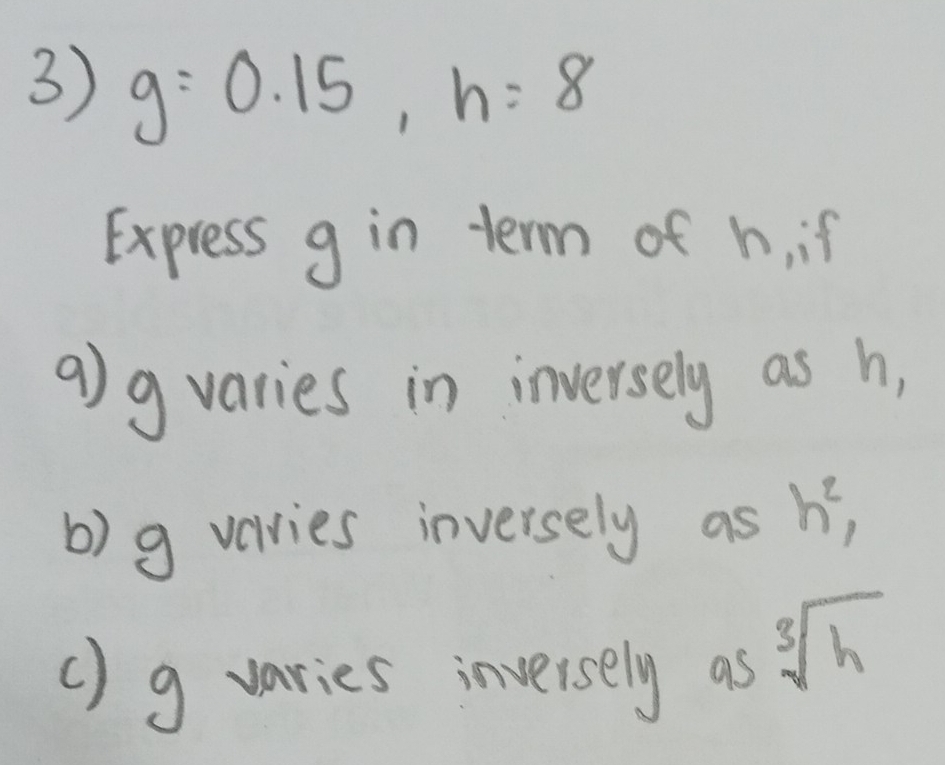 3) g = 0.15 , h = 8
Express g in term of h, if
a) g varies in inversely as h,
b) g varies inversely as h²,
c) g varies inversely as ∛h